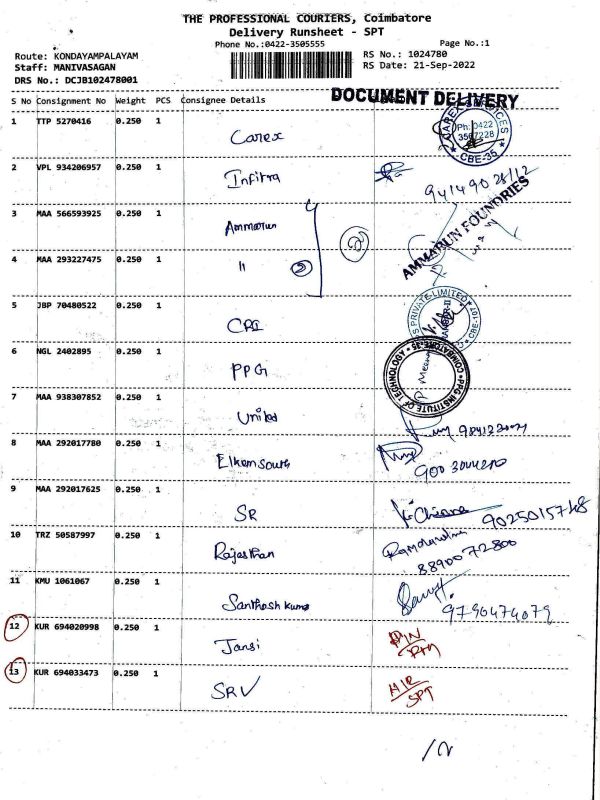 THE PROFESSIONAL COURIERS, Coimbatore
Delivery Runsheet - SPT
Phone No.:0422-3505555
Page No.:1
Route: KONDAYAMPALAYAM
RS No.: 1024780
Staff: MANIVASAGAN
RS Date: 21-Sep-2022
DRS No.: DCJB102478001
DOCUMENT DELIVERY
S No Consignment No Weight PCS Consignee Details
1 TTP 5270416 0.250 1
Carex
CAREX
Ph: 0422
3567228
CBE-35
2 VPL 934206957 0.250 1
Infitra
3 MAA 566593925 0.250 1
Ammarun
AMMARUN FOUNDRIES
4 MAA 293227475 0.250 1
11 2
2
5 JBP 70480522 0.250 1
CPI
PRIVATE LIMITED
6 NGL 2402895 0.250 1
PPG
PPG INSTITUTE OF TECHNOLOGY
COIMBATORE-35
7 MAA 938307852 0.250 1
United
8 MAA 292017780 0.250 1
Elkem South
9 MAA 292017625 0.250 1
SR
9025015748
10 TRZ 50587997 0.250 1
Rajasthan
8890072800
11 KMU 1061067 0.250 1
Santhosh Kumar
9790474079
12 KUR 694020998 0.250 1
Jansi
13 KUR 694033473 0.250 1
SRV
SPT